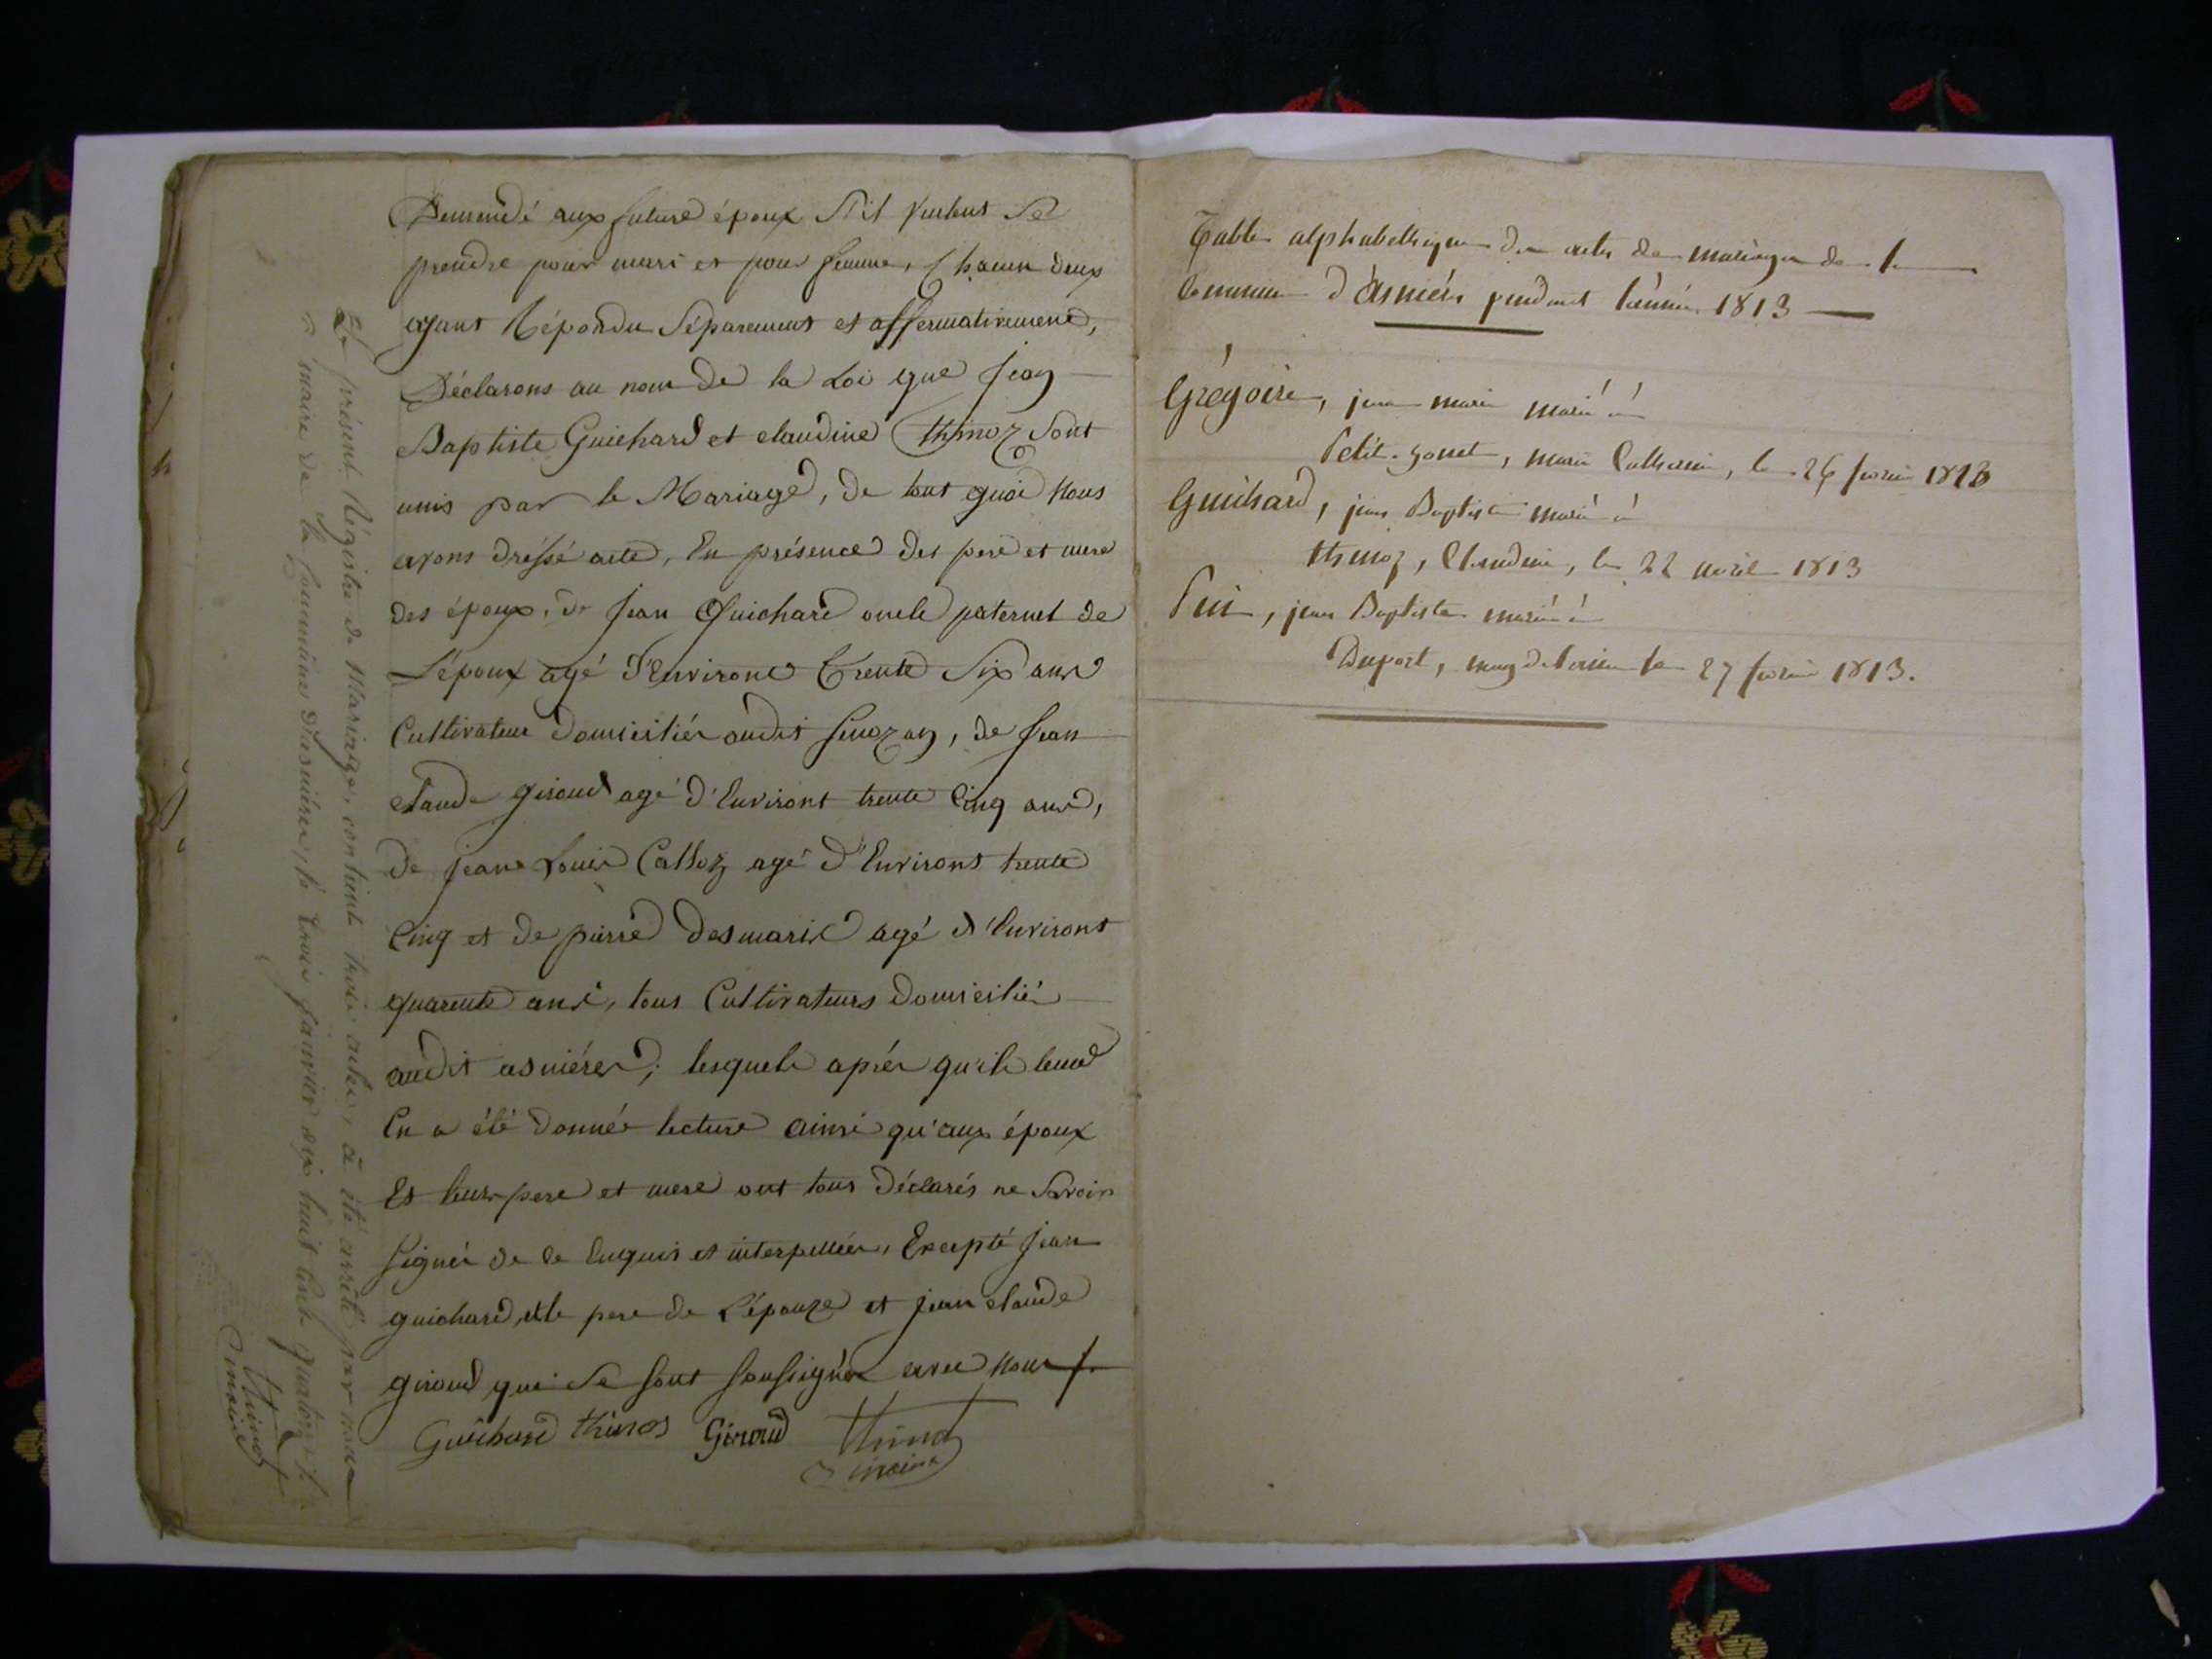 Demendé aux future époux S'il veulent se
prendre pour mari et pour femme, Chacun deux
ayant Répondu Séparement et affermativement,
Déclarons au nom de la Loi que Jean
Baptiste Guichard et claudine thinoz sont
unis par le Mariage, de tout quoi Nous
avons dressé acte, En présence des pere et mere
des époux, de Jean Guichard oncle paternel de
L'époux agé d'Environt Trente Six ans
Cultivateur domicilié audit Senozan, de Jean
claude giroud agé d'Environt trente Cinq ans,
de jean Louis Calloz agé d'Environt trente
Cinq et de pierre desmaris agé d'Environt
quarente ans, tous Cultivateurs domicilié
audit asniéres, lesquels aprés qu'il leurs
En a été donnée lecture ainsi qu'aux époux
Et leurs pere et mere ont tous déclarés ne Savoir
Signér de ce Enquis et interpellés, Excepté Jean
guichard, et le pere de L'épouze et jean claude
giroud qui se sont soussignés avec Nous
Guichard thinos Giroud thinoz
maire
Le présent Régistre de Mariage, contient trois actes, a été arrêté par nous
maire de la Commune d'asniéres, le trois janvier dix huit Cent quatorze
thinoz
maire
Table alphabétique des actes de mariages de la
Commune d'Asniéres pendant l'année 1813
Grégoire, jean marie marié à
Petit-gonet, marie Catherine, le 26 fevrier 1813
Guichard, jean Baptiste marié à
thinoz, Claudine, le 22 avril 1813
Pui, jean Baptiste marié à
Duport, magdelaine le 27 fevrier 1813.